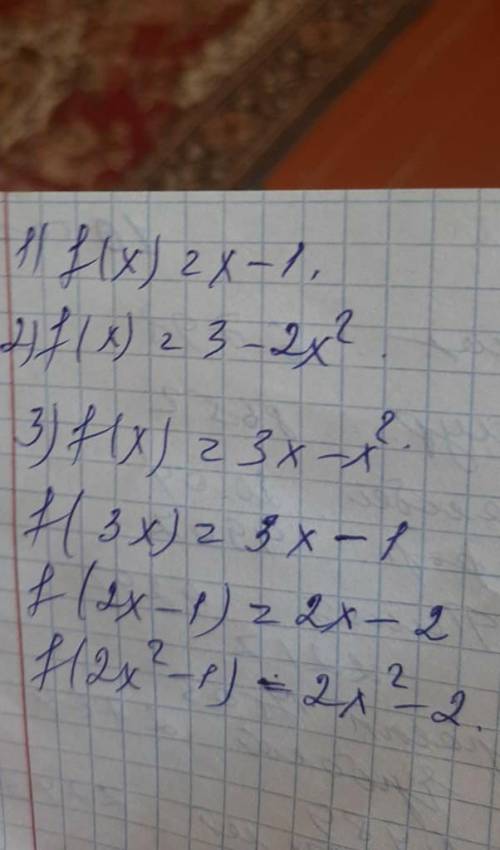 1) f(x) = x - 1.
2) f(x) = 3 - 2x².
3) f(x) = 3x - x².
f(3x) = 3x - 1
f(2x - 1) = 2x - 2
f(2x² - 1) = 2x² - 2.